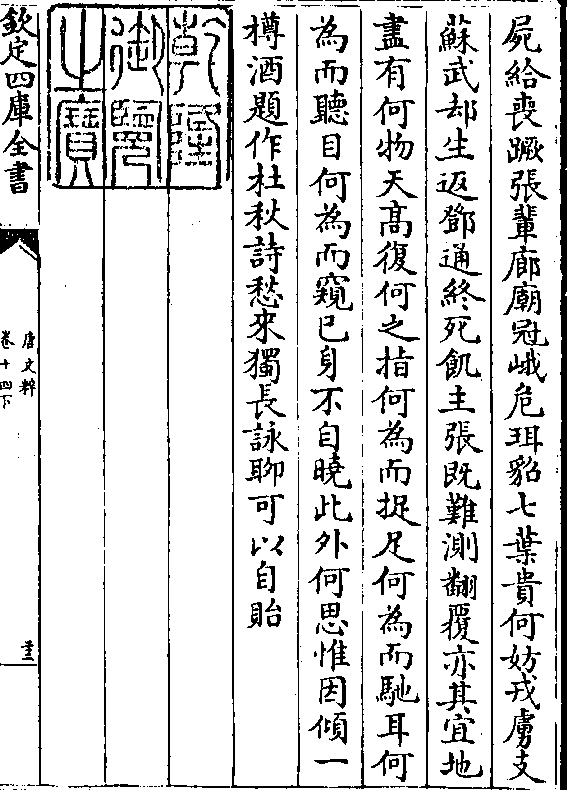 屍給喪蹶張輩廊廟冠峨危珥貂七葉貴何妨戎虜支
蘇武却生返鄧通終死飢主張既難測翻覆亦其宜地
盡有何物天髙復何之指何為而捉足何為而馳耳何
為而聽目何為而窺已身不自曉此外何思惟因傾一
樽酒題作杜秋詩愁來獨長詠聊可以自貽
乾隆
御覽
之寳
欽定四庫全書
唐文粹
卷十四下